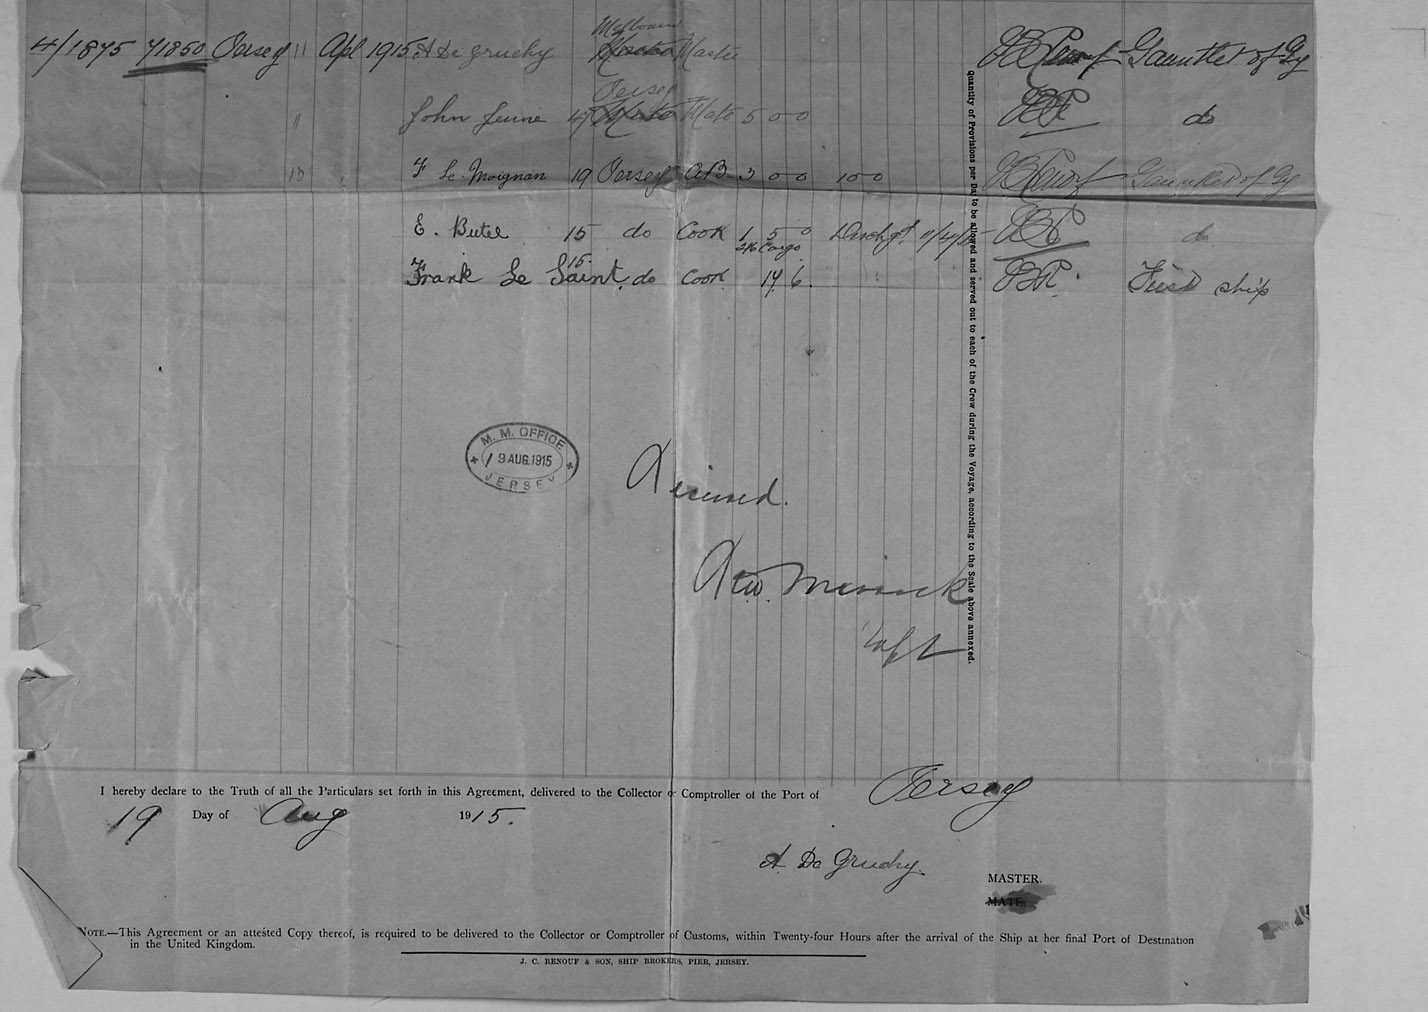 4/1875 71850 Jersey 11 Apl 1915 A De Gruchy Melbourne Master
Gauntlet of Gy
" John Jeune 47 Jersey Mate 5 0 0
do
F Le Moignan 19 Jersey AB 3 0 0 10 0
Gauntlet of Gy
E. Butel 15 do Cook 1 5 0
do
Cargo
Frank Le Saint 15. do Cook 17 6.
First ship
M. M. OFFICE
19 AUG.1915
JERSEY
Quantity of Provisions per Day to be allowed and served out to each of the Crew during the Voyage, according to the Scale above annexed.
I hereby declare to the Truth of all the Particulars set forth in this Agreement, delivered to the Collector or Comptroller of the Port of Jersey
19 Day of Aug 1915.
A De Gruchy.
MASTER.
MATE.
NOTE.—This Agreement or an attested Copy thereof, is required to be delivered to the Collector or Comptroller of Customs, within Twenty-four Hours after the arrival of the Ship at her final Port of Destination
in the United Kingdom.
J. C. RENOUF & SON, SHIP BROKERS, PIER, JERSEY.